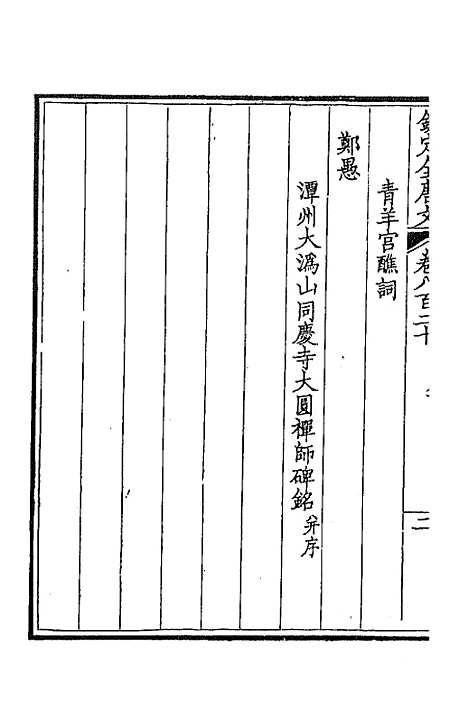 欽定全唐文 卷八百二十 二
青羊宮醮詞
鄭愚
潭州大潙山同慶寺大圓禪師碑銘 并序